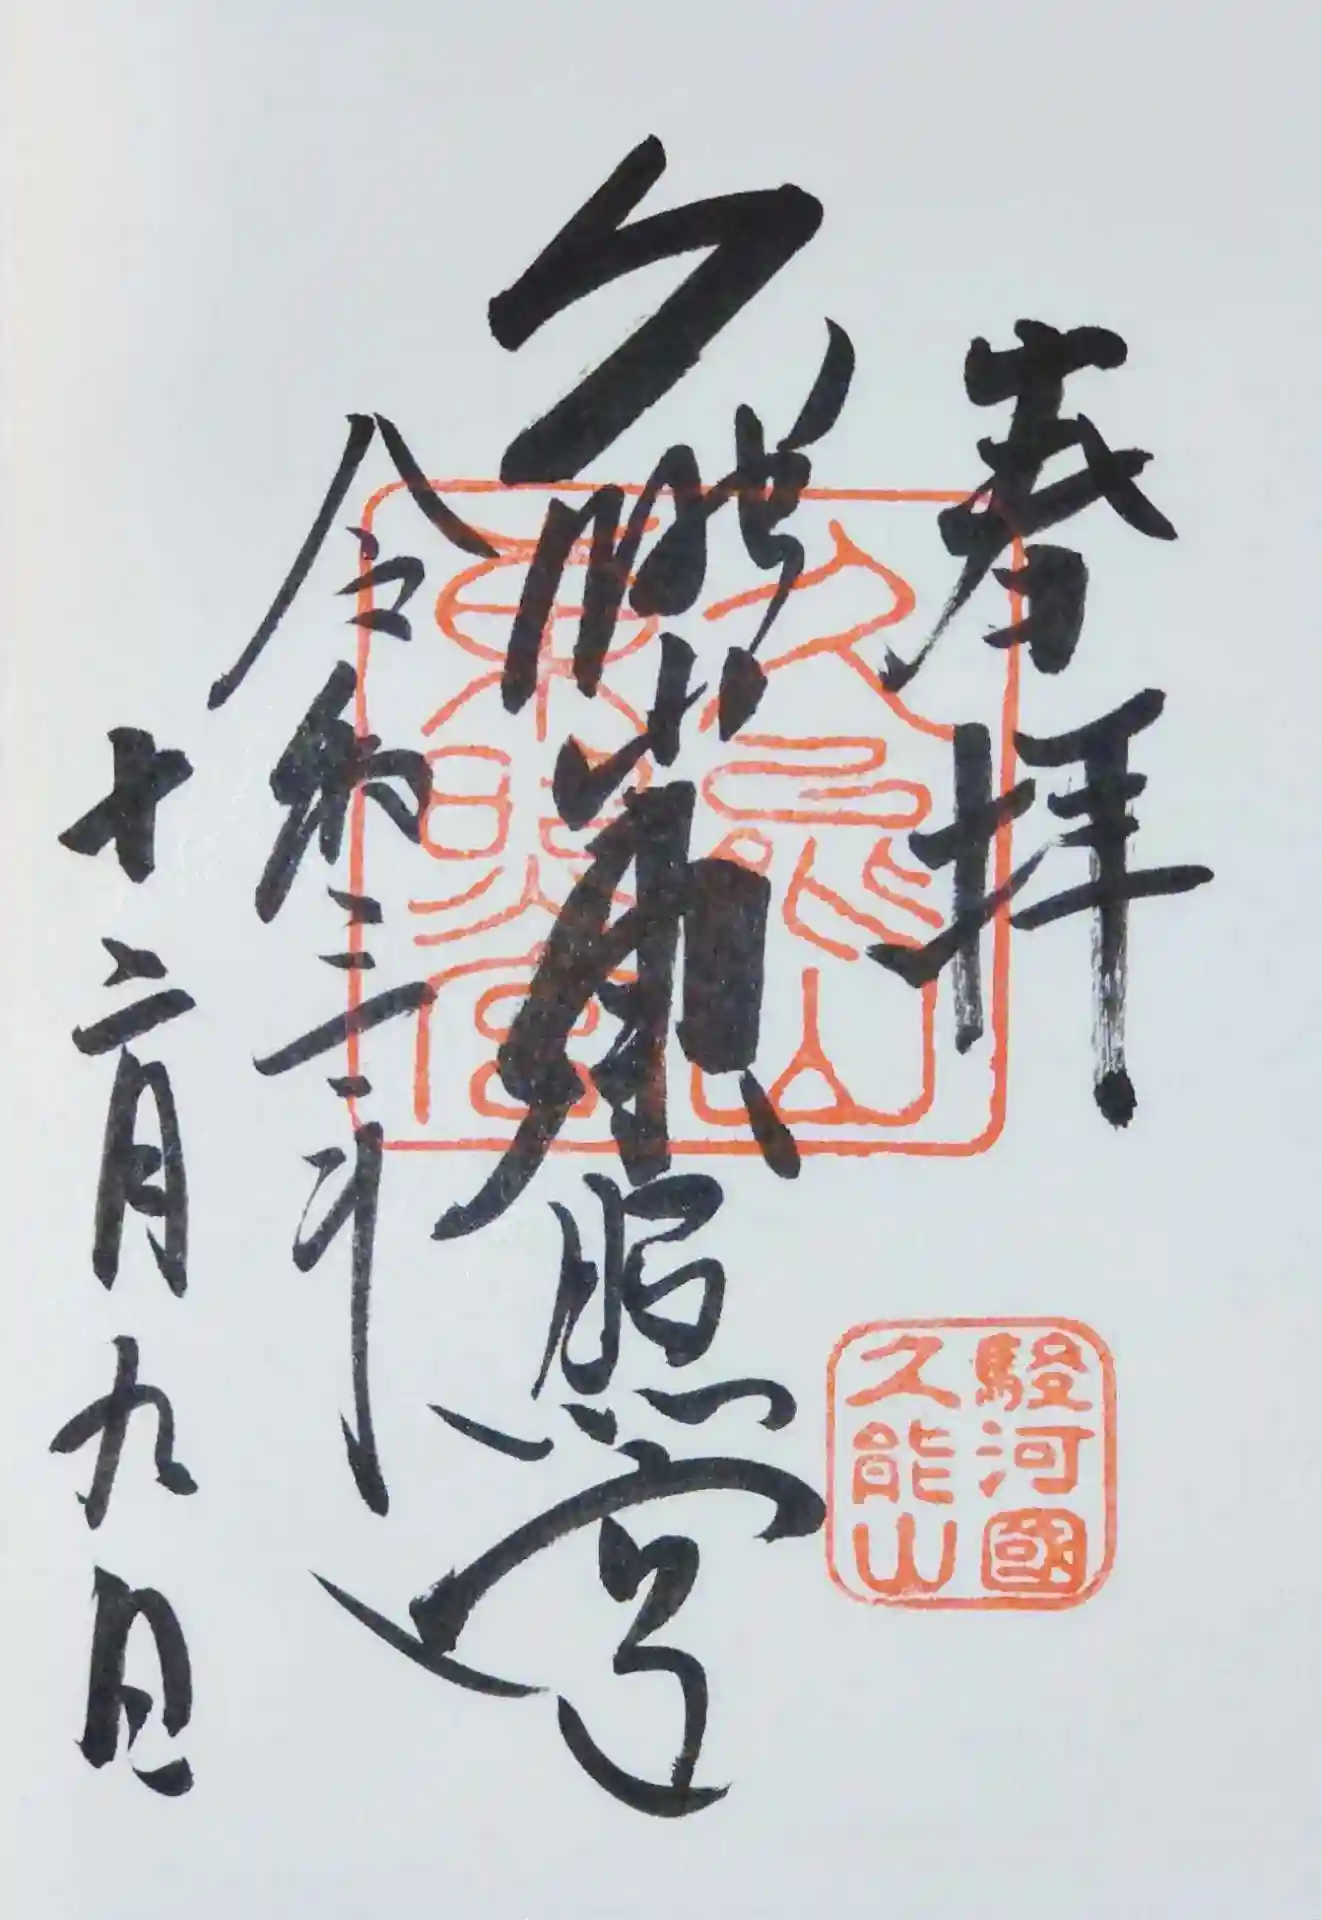 奉拝
久能山東照宮
令和三年
十二月九日
久能山
東照宮
駿河國
久能山